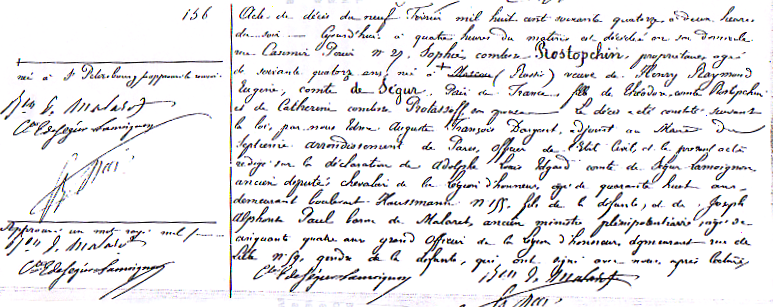 156
Acte de décès du neuf Février mil huit cent soixante quatorze à deux heures
du soir — Aujourd'hui à quatre heures du matin est décédée en son domicile
rue Casimir Perier N° 27, Sophie comtesse Rostopchin, propriétaire, agée
de soixante quatorze ans, née à + Moscou (Russie) veuve de Henry Raymond
Eugène, comte de Ségur, Pair de France, fille de Théodore comte Rostopchin
et de Catherine comtesse Protassoff, son épouse Le décès a été constaté suivant
la loi, par nous Edme Auguste François Dargent, adjoint au Maire du
Septième arrondissement de Paris, officier de l'État Civil, et le présent acte
rédigé sur la déclaration de Adolphe Louis Edgard comte de Ségur Lamoignon
ancien député, chevalier de la Légion d'honneur, agé de quarante huit ans
demeurant boulevart Haussmann N° 155, fils de la défunte, et de Joseph
Alphonse Paul baron de Malaret, ancien ministre plénipotentiaire, agé de
cinquante quatre ans grand officier de la Légion d'honneur, demeurant rue de
Lille N° 59, gendre de la défunte, qui ont signé avec nous, après lecture
Cte E de Ségur Lamoignon Bon P. Malaret
+ née à St Petersbourg j'approuve le renvoi
Bon P. Malaret
Cte E de Ségur Lamoignon
Approuvé un mot rayé nul
Bon P. Malaret
Cte E de Ségur Lamoignon